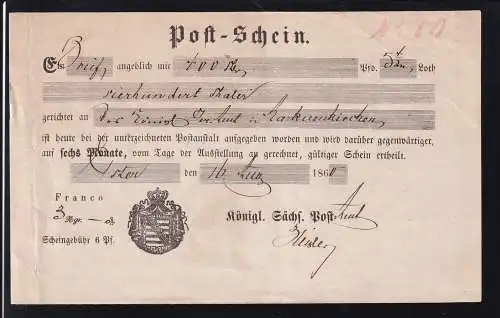 Post-Schein.
Ein Brief, angeblich mit 400 Pfd. Loth
vierhundert Thaler
gerichtet an Das Königl in Markneukirchen
ist heute bei der unterzeichneten Postanstalt aufgegeben worden und wird darüber gegenwärtiger,
auf sechs Monate, vom Tage der Ausstellung an gerechnet, gültiger Schein ertheilt.
den 16 186
Franco
3 Ngr. — Pf
Scheingebühr 6 Pf.
Königl. Sächs. Post-Amt